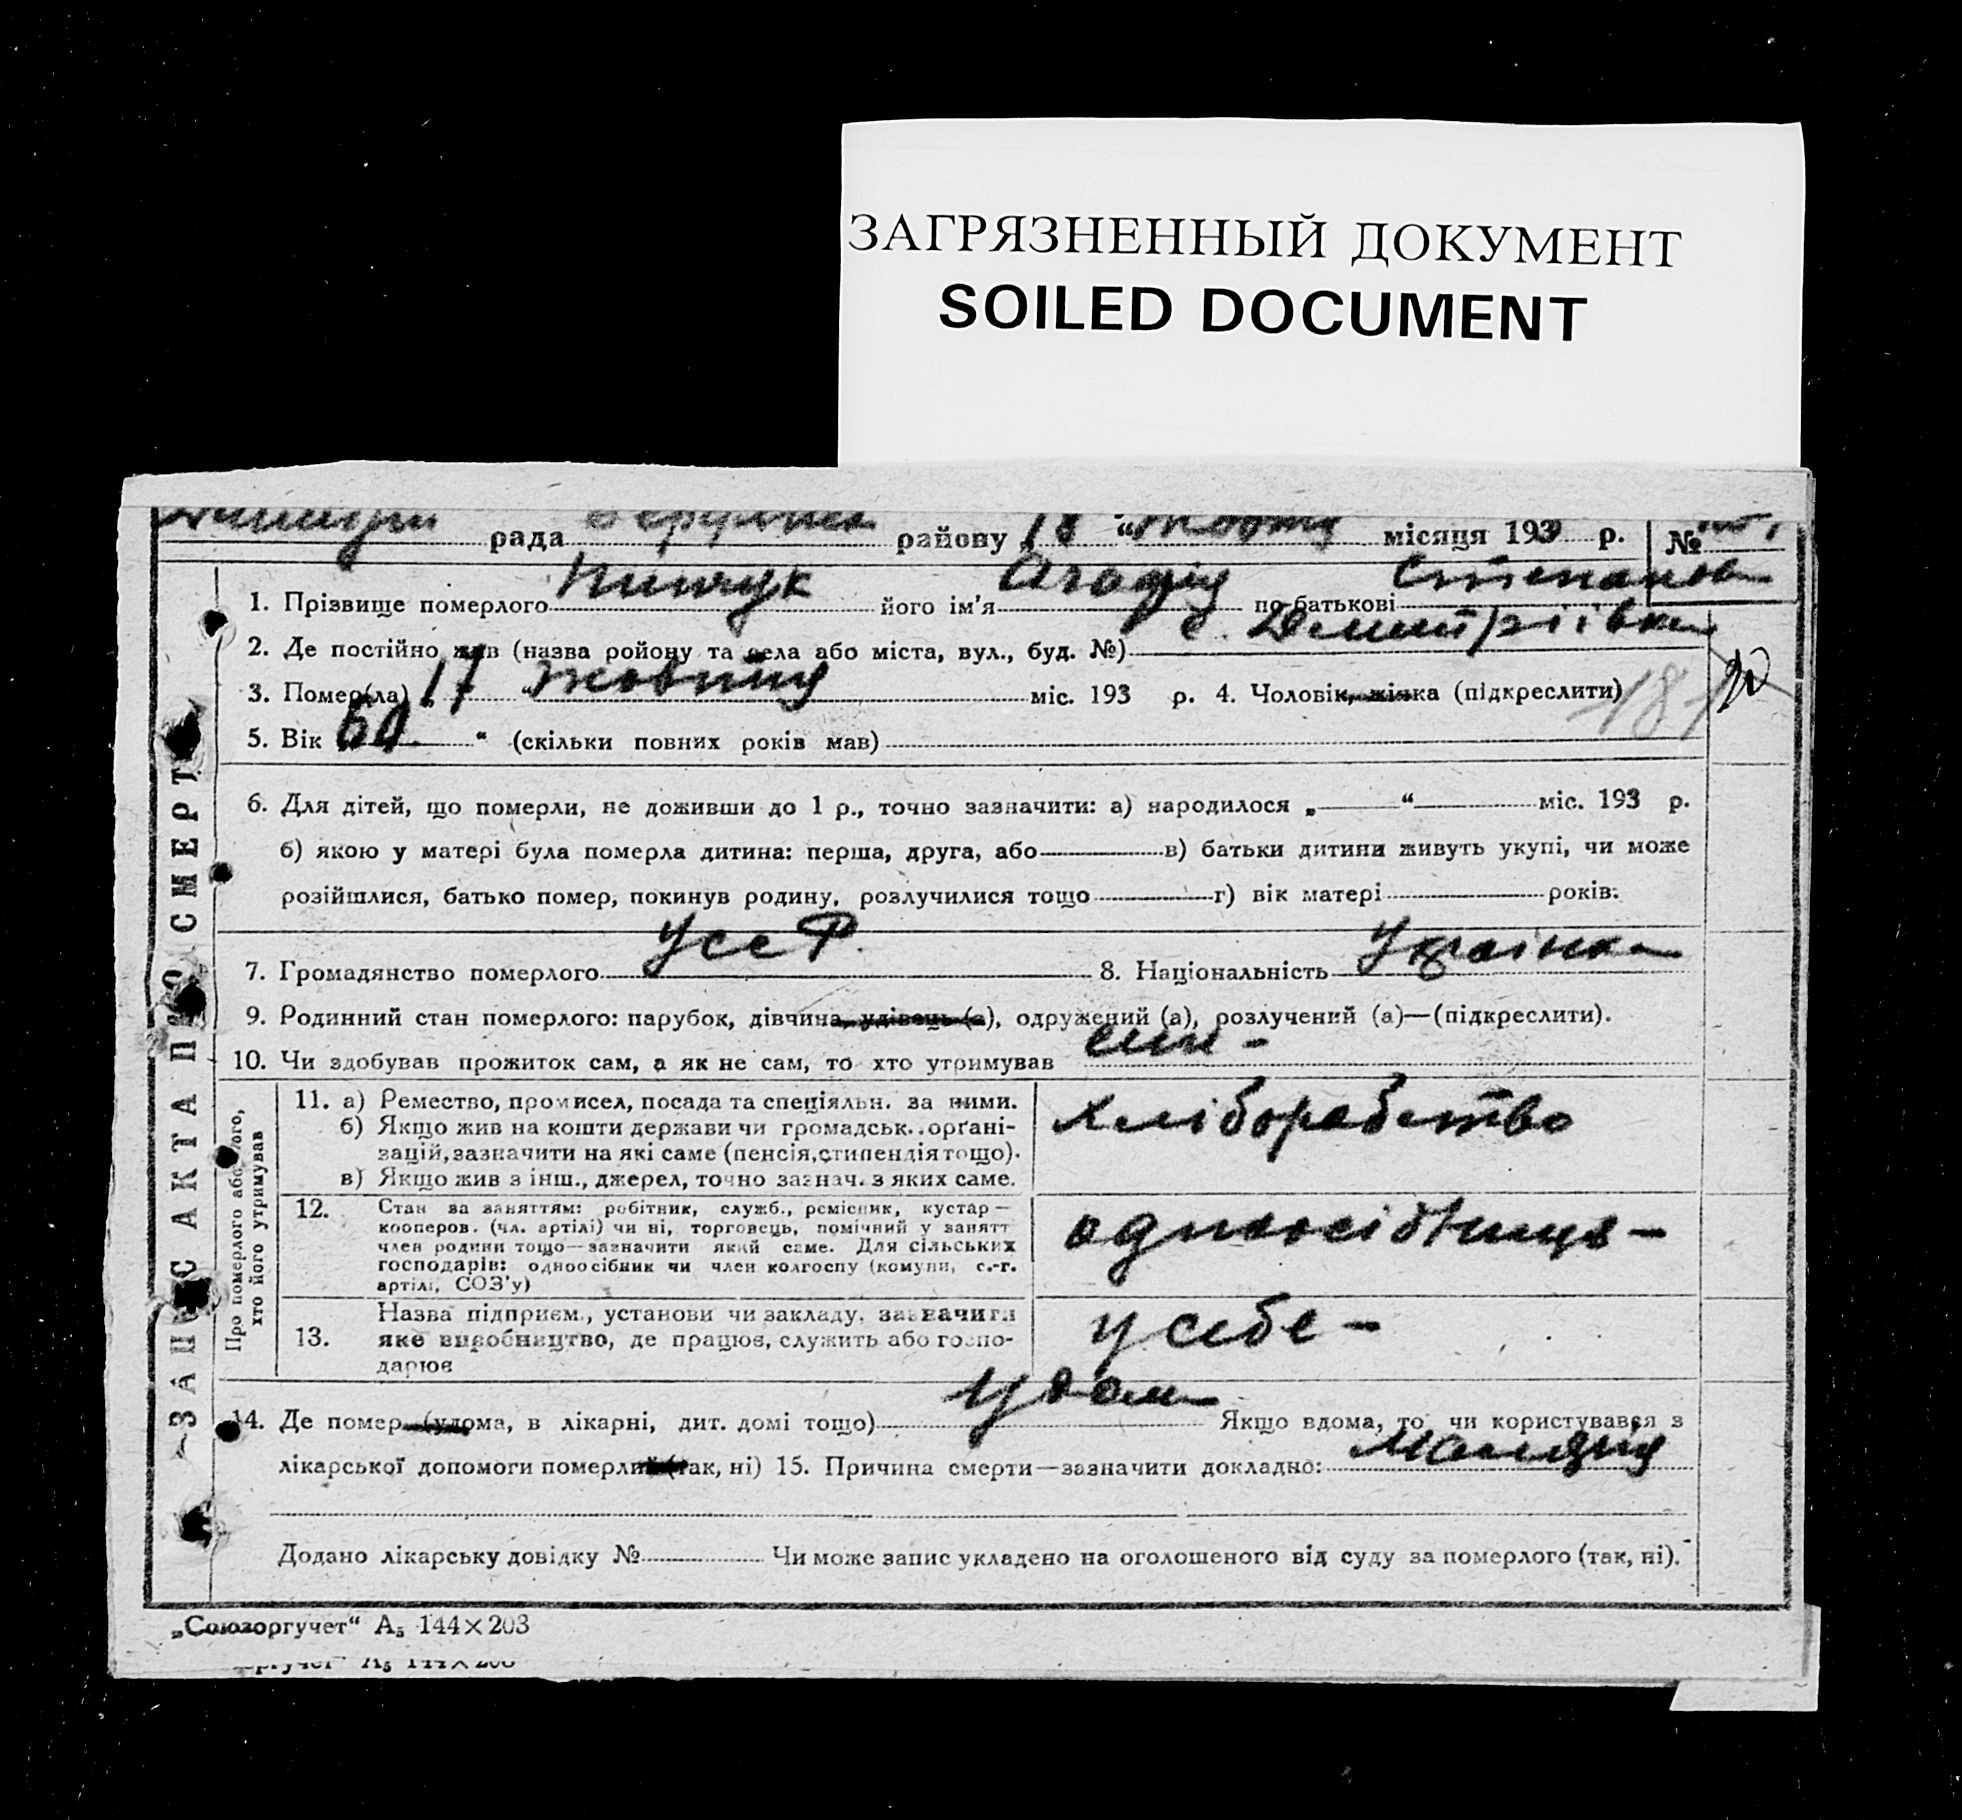 ЗАГРЯЗНЕННЫЙ ДОКУМЕНТ
SOILED DOCUMENT
рада районну 18 “ місяця 193 р. №
1. Прізвище померлого його ім'я по батькові
с. Дмитріївка
2. Де постійно жив (назва ройону та села або міста, вул., буд. №)
3. Помер(ла) 17 жовтня міс. 193 р. 4. Чоловік, жінка (підкреслити) 181
5. Вік 60 “ (скільки повних років мав)
6. Для дітей, що померли, не доживши до 1 р., точно зазначити: а) народилося „ “ міс. 193 р.
б) якою у матері була померла дитина: перша, друга, або в) батьки дитини живуть укупі, чи може
розійшлися, батько помер, покинув родину, розлучилися тощо г) вік матері років.
7. Громадянство померлого УССР 8. Національність Українка
9. Родинний стан померлого: парубок, дівчина, удівець (а), одружений (а), розлучений (а)—(підкреслити).
10. Чи здобував прожиток сам, а як не сам, то хто утримував син -
Про померлого або того, хто його утримував
11. а) Ремество, промисел, посада та спеціяльн. за ними.
б) Якщо жив на кошти держави чи громадськ. орґані-
зацій, зазначити на які саме (пенсія, стипендія тощо).
в) Якщо жив з інш., джерел, точно зазнач. з яких саме.
хліборобство
12. Стан за заняттям: робітник, служб., ремісник, кустар—
кооперов. (чл. артілі) чи ні, торговець, помічний у занятт
член родини тощо—зазначити який саме. Для сільських
господарів: одноосібник чи член колгоспу (комуни, с.-г.
артілі, СОЗ'у)
13. Назва підприєм., установи чи закладу, зазначити
яке виробництво, де працює, служить або госпо-
дарює
у себе -
14. Де помер (удома, в лікарні, дит. домі тощо) удома Якщо вдома, то чи користувався з
лікарської допомоги померлий (так, ні) 15. Причина смерти—зазначити докладно: Малярія
Додано лікарську довідку № Чи може запис укладено на оголошеного від суду за померлого (так, ні).
ЗАПИС АКТА ПРО СМЕРТЬ
„Союзоргучет“ А₅ 144×203